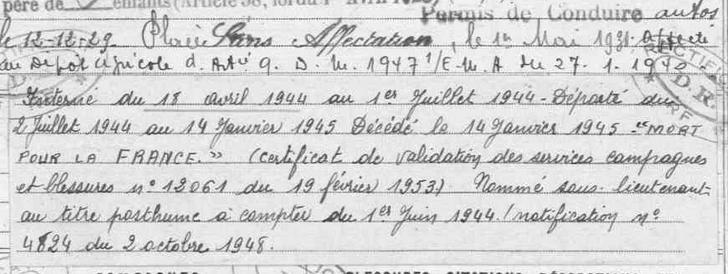 père de enfants (Article 58, loi du 1er
Permis de Conduire autos
le 12-12-29. Placé Sans Affectation, le 1er Mai 1931. Affecté
au Dépôt Agricole d'Artie 9. D. M. 1947 1/E.M.A du 27.1.1940
Interné du 18 avril 1944 au 1er Juillet 1944 - Déporté du
2 Juillet 1944 au 14 Janvier 1945 Décédé le 14 Janvier 1945 "MORT
POUR LA FRANCE." (certificat de validation des services campagnes
et blessures n° 12061 du 19 février 1953) Nommé sous-lieutenant
au titre posthume à compter du 1er Juin 1944. (notification n°
4824 du 2 octobre 1948.